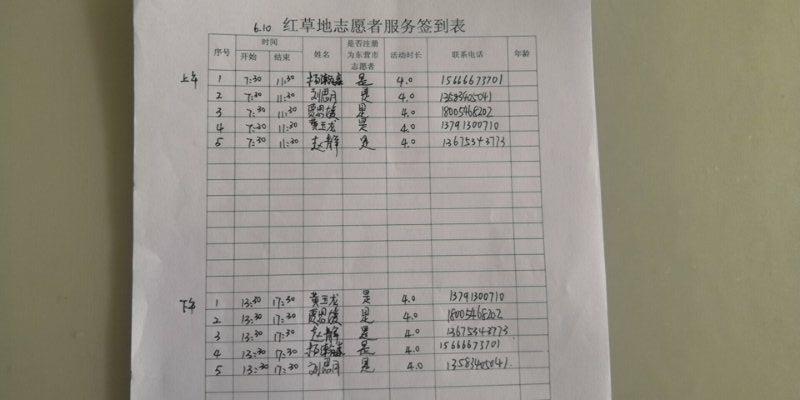 6.10 红草地志愿者服务签到表
序号 时间 姓名 是否注册为东营市志愿者 活动时长 联系电话 年龄
开始 结束
上午 1 7:30 11:30 是 4.0 15666673701
2 7:30 11:30 刘思月 是 4.0 13583405041
3 7:30 11:30 是 4.0 18005468202
4 7:30 11:30 黄玉龙 是 4.0 13791300710
5 7:30 11:30 赵静 是 4.0 13675343773
下午 1 13:30 17:30 黄玉龙 是 4.0 13791300710
2 13:30 17:30 是 4.0 18005468202
3 13:30 17:30 赵静 是 4.0 13675343773
4 13:30 17:30 是 4.0 15666673701
5 13:30 17:30 刘思月 是 4.0 13583405041.